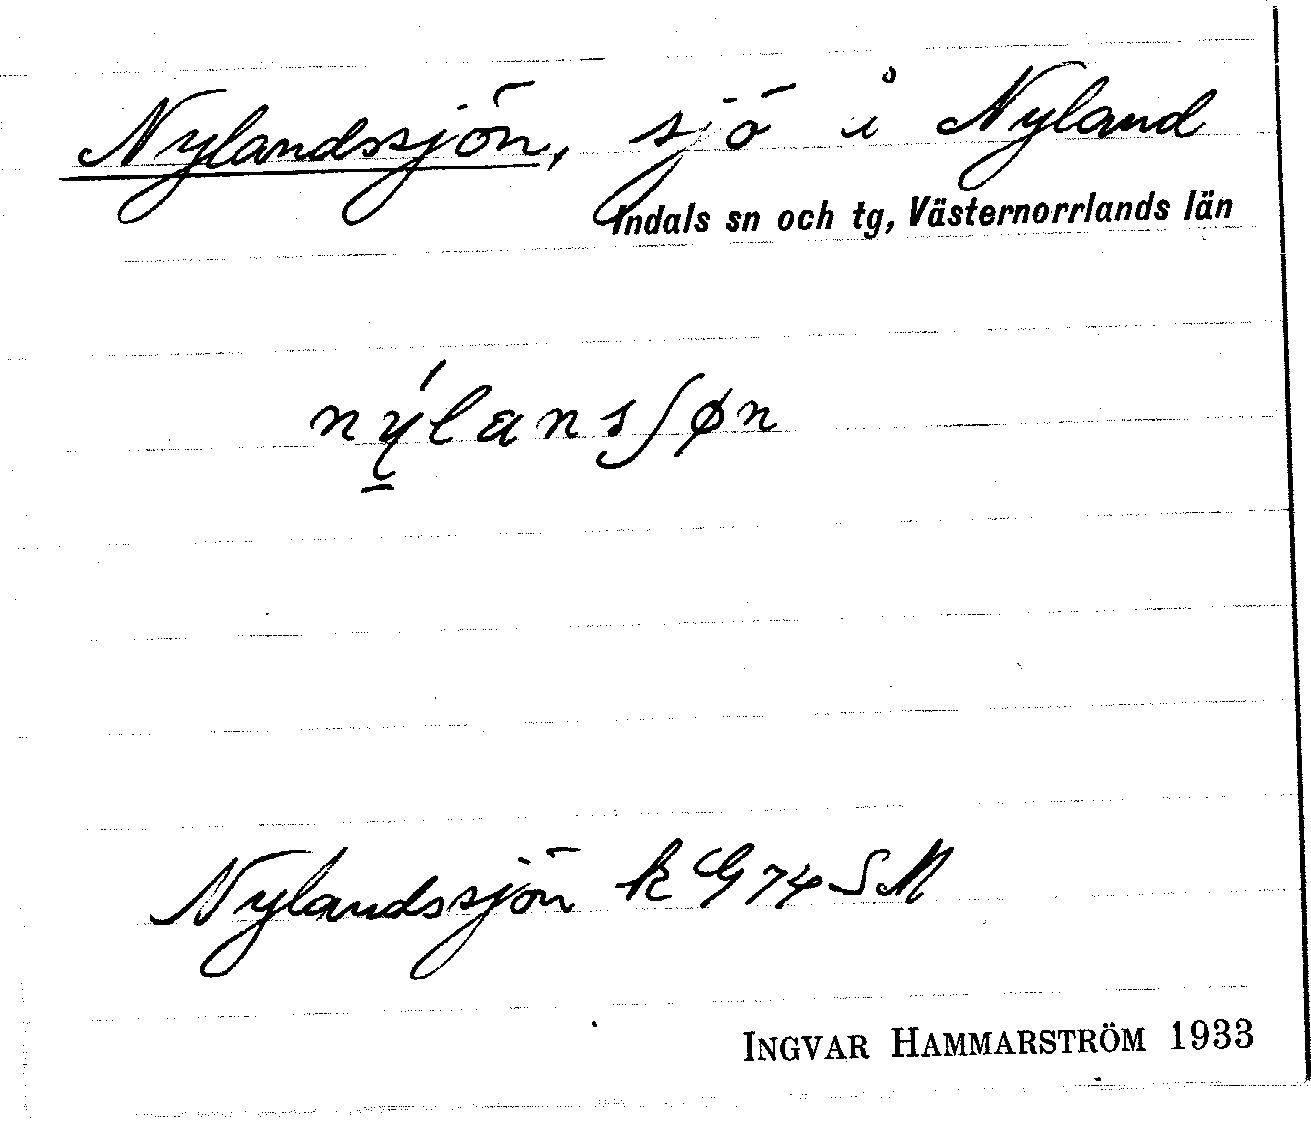 Nylandssjön, sjö i Nyland
Indals sn och tg, Västernorrlands län
nýlansʃøn
Nylandssjön k G 74 SM
INGVAR HAMMARSTRÖM 1933